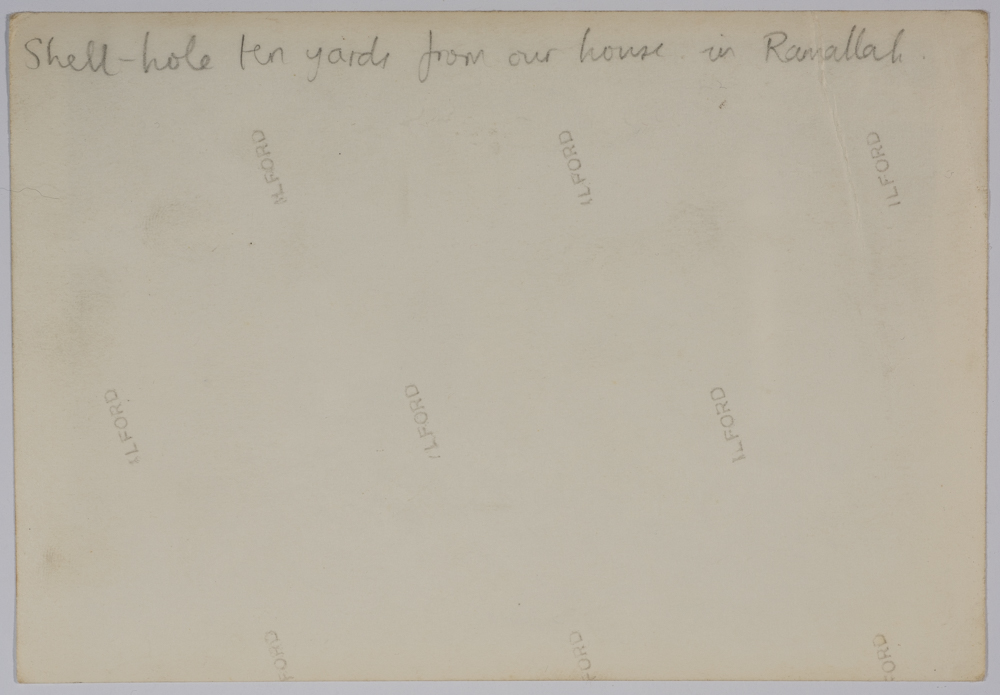 Shell-hole ten yards from our house in Ramallah.
ILFORD ILFORD ILFORD
ILFORD ILFORD ILFORD
FORD FORD FORD